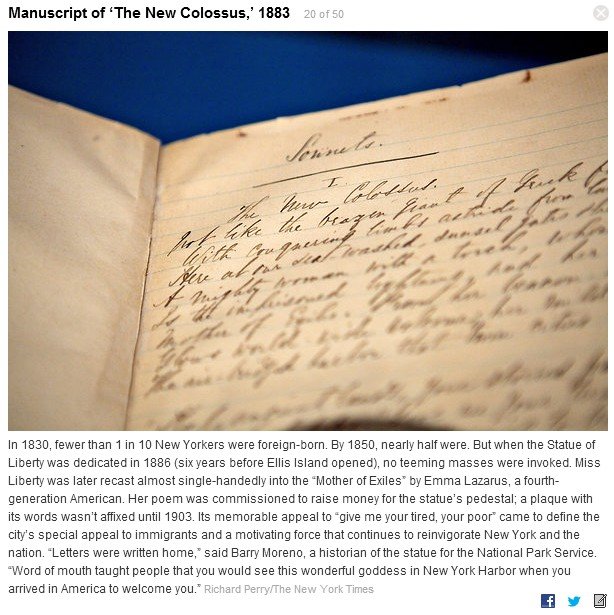 Manuscript of ‘The New Colossus,’ 1883 20 of 50
Sonnets.
I.
The New Colossus.
Not like the brazen giant of Greek
With conquering limbs astride from
Here at our sea-washed, sunset gates
A mighty woman with a torch, whose
Is the imprisoned lightning and her
Mother of Exiles. From her beacon
Glows world-wide welcome; her
The air-bridged harbor that
In 1830, fewer than 1 in 10 New Yorkers were foreign-born. By 1850, nearly half were. But when the Statue of
Liberty was dedicated in 1886 (six years before Ellis Island opened), no teeming masses were invoked. Miss
Liberty was later recast almost single-handedly into the “Mother of Exiles” by Emma Lazarus, a fourth-
generation American. Her poem was commissioned to raise money for the statue’s pedestal; a plaque with
its words wasn’t affixed until 1903. Its memorable appeal to “give me your tired, your poor” came to define the
city’s special appeal to immigrants and a motivating force that continues to reinvigorate New York and the
nation. “Letters were written home,” said Barry Moreno, a historian of the statue for the National Park Service.
“Word of mouth taught people that you would see this wonderful goddess in New York Harbor when you
arrived in America to welcome you.” Richard Perry/The New York Times